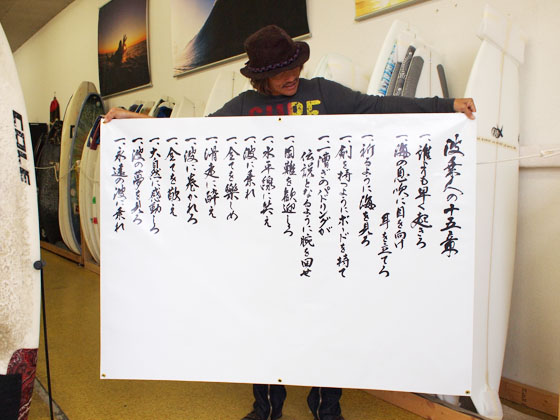 波乗人の十五章
一、誰よりも早く起きろ
一、海の息吹に目を向け
耳を立てろ
一、祈るように海を見ろ
一、剣を持つようにボードを持て
一、一漕ぎのパドリングが
伝説となるように腕を回せ
一、困難を歓迎しろ
一、水平線に笑え
一、波に乗れ
一、全てを楽しめ
一、滑走に酔え
一、波に巻かれろ
一、全てを敬え
一、大自然に感動しろ
一、波の夢を見ろ
一、永遠の波に乗れ
SURE
CORE